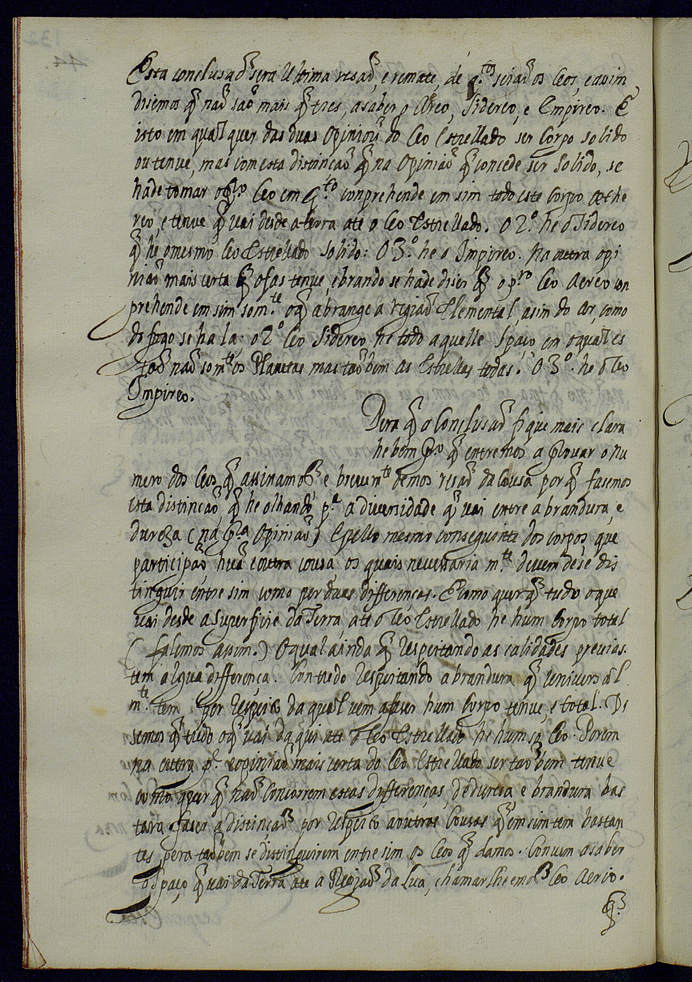 Esta conclusaõ sera Ultima resaõ, e remate, de q.tos sejaõ os Ceos, e assim
disemos q̃ naõ saõ mais q̃ tres, a saber o Aereo, Sidereo, e Empireo. E
isto em qual quer das duas Opinioũs do Ceo Estrellado ser Corpo solido
ou tenue, mas com esta distincaõ q̃ na Opiniaõ q̃ concede ser Solido, se
hade tomar o p.ro Ceo em q.to conprehende em sim todo este Corpo Æthe
reo, e tenue q̃ vai desde a terra ate o Ceo Estrellado. O 2.º he o Sidereo
q̃ he o mesmo Ceo Estrellado solido: O 3.º he o Impireo. Na outra opi
niaõ mais certa q̃ o fas tenue, e brando se hade diser q̃ o p.ro Ceo Aereo con
prehende em sim som.te o q̃ abrange a regiaõ Elemental asim do ar, como
do fogo se ha la: o 2.º Ceo Sidereo he todo aquelle Spaço em o qual es
taõ naõ som.te os Planetas mas taõ bem as Estrellas todas. O 3.º he o Ceo
Impireo.
Pera q̃ o Conclusaõ fique mais clara
he bem q̃ entremos a provar o nu
mero dos Ceos q̃ assinamos e brevem.te demos resaõ da Cousa por q̃ fasemos
esta distincaõ q̃ he olhando p.a a diversidade q̃ vai entre a brandura, e
dureza (na p.ra Opiniaõ) E pello mesmo conseguinte dos corpos, que
participaõ huã e outra cousa os quais necessaria m.te devem dese dis
tinguir entre sim como per duas differencas. E como quer q̃ tudo o que
vai desde a Superficie da Terra ate o Ceo Estrellado he hum Corpo total
(falemos assim.) O qual ainda q̃ Respeitando as calidades previas
tem algua differenca. Contudo Respeitando a brandura q̃ universal
m.te tem por Respeito da qual vem a faser hum Corpo tenue, e total. Di
semos q̃ tudo o q̃ vai da qui ate o Ceo Estrellado he hum só Ceo. Porem
na outra p.te e opiniaõ mais certa do Ceo Estrellado ser taõ bem tenue
como quer q̃ naõ Concorrem estas differencas, de dureza e brandura bas
tara faser a distincaõ por Respeito a outras Cousas q̃ em sim tem bastan
tes pera taõ bem se distinguirem entre sim os Ceos q̃ damos. Convem a saber
o spaço q̃ vai da Terra ate a Regiaõ da Lua, chamar lhe emos Ceo Aerio.